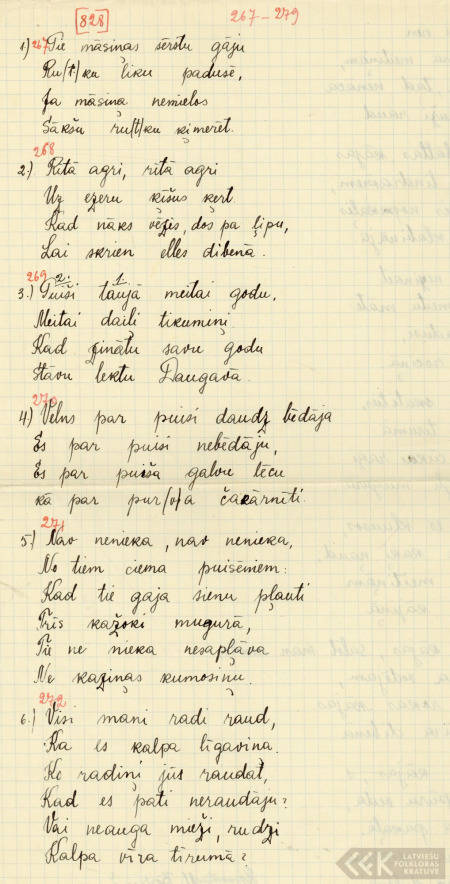 828 267-279
1) 267 Pie māsiņas sērstu gāju
Ru/t/ku liku padusē,
Ja māsiņa nemielos
Sākšu ru/t/ku ķimerēt.
268
2.) Rītā agri, rītā agri
Uz ezeru kīšus ķert.
Kad nāks vēzis, dos pa ļipu,
Lai skrien elles dibenā.
269 2. 1.
3.) Puiši taujā meitai godu,
Meitai daiļi tikumiņi
Kad zinātu savu godu
Stāvu lektu Daugavā.
270
4) Velns par puisi daudz bēdāja
Es par puisi nebēdāju,
Es par puiša galvu lēcu
kā par pur/v/a čakārnīti.
271
5.) Nav nenieka, nav nenieka,
No tiem ciema puisēniem:
Kad tie gaja sienu pļauti
Trīs kažoki mugurā,
Tie ne nieka nesapļāva
Ne kaziņas kumosiņu.
272
6.) Visi mani radi raud,
Ka es kalpa līgaviņa.
Ko radiņi jūs raudat,
Kad es pati neraudāju?
Vai neauga mieži, rudzi
Kalpa vīra tīrumā?
LATVIEŠU
FOLKLORAS
KRĀTUVE